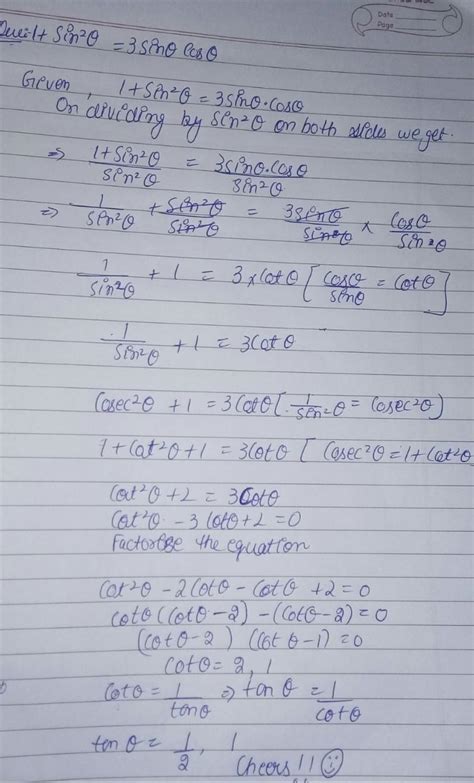 Date
Page
Ques:1+ Sin²θ = 3Sinθ Cosθ
Given, 1+Sin²θ = 3Sinθ.Cosθ
On dividing by Sin²θ on both sides we get.
⇒ (1+Sin²θ)/(Sin²θ) = (3Sinθ.Cosθ)/(Sin²θ)
⇒ 1/Sin²θ + Sin²θ/Sin²θ = 3Sinθ/Sin²θ × Cosθ/Sin²θ
1/Sin²θ + 1 = 3×Cotθ [Cosθ/Sinθ = Cotθ]
1/Sin²θ + 1 = 3Cotθ
Cosec²θ + 1 = 3Cotθ [1/Sin²θ = Cosec²θ)
1+Cot²θ+1 = 3Cotθ [Cosec²θ = 1+Cot²θ
Cot²θ+2 = 3Cotθ
Cot²θ - 3Cotθ+2 = 0
Factorise the equation
Cot²θ - 2Cotθ - Cotθ + 2 = 0
Cotθ(Cotθ-2) - (Cotθ-2) = 0
(Cotθ-2) (Cotθ-1) = 0
Cotθ = 2, 1
Cotθ = 1/tanθ ⇒ tanθ = 1/Cotθ
tanθ = 1/2, 1
Cheers!!